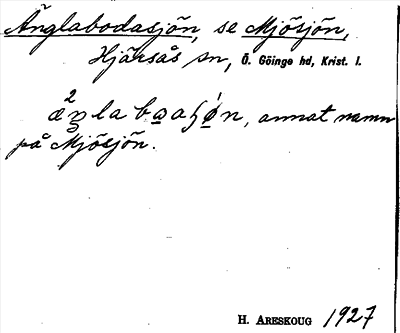 Änglabodasjön, se Mjösjön,
Hjärsås sn, Ö. Göinge hd, Krist. l.
annat namn
på Mjösjön.
H. ARESKOUG 1927